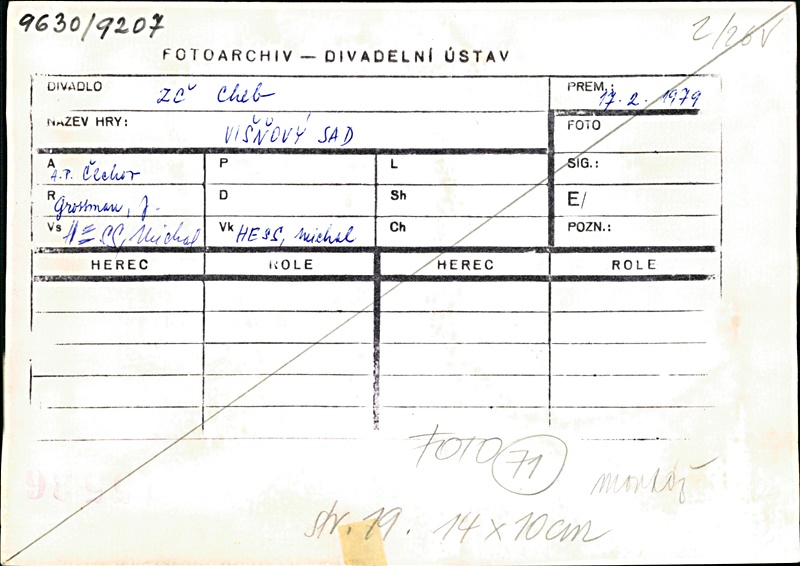 9630/9207
FOTOARCHIV — DIVADELNÍ ÚSTAV
DIVADLO ZČ Cheb
PREM.: 17. 2. 1979
NÁZEV HRY: VIŠŇOVÝ SAD
FOTO
A A.P. Čechov P L SIG.:
R Grossman, J. D Sh E/
Vs HESS, Michal Vk HESS, Michal Ch POZN.:
HEREC ROLE HEREC ROLE
FOTO 71
montáž
str. 19. 14 x 10 cm